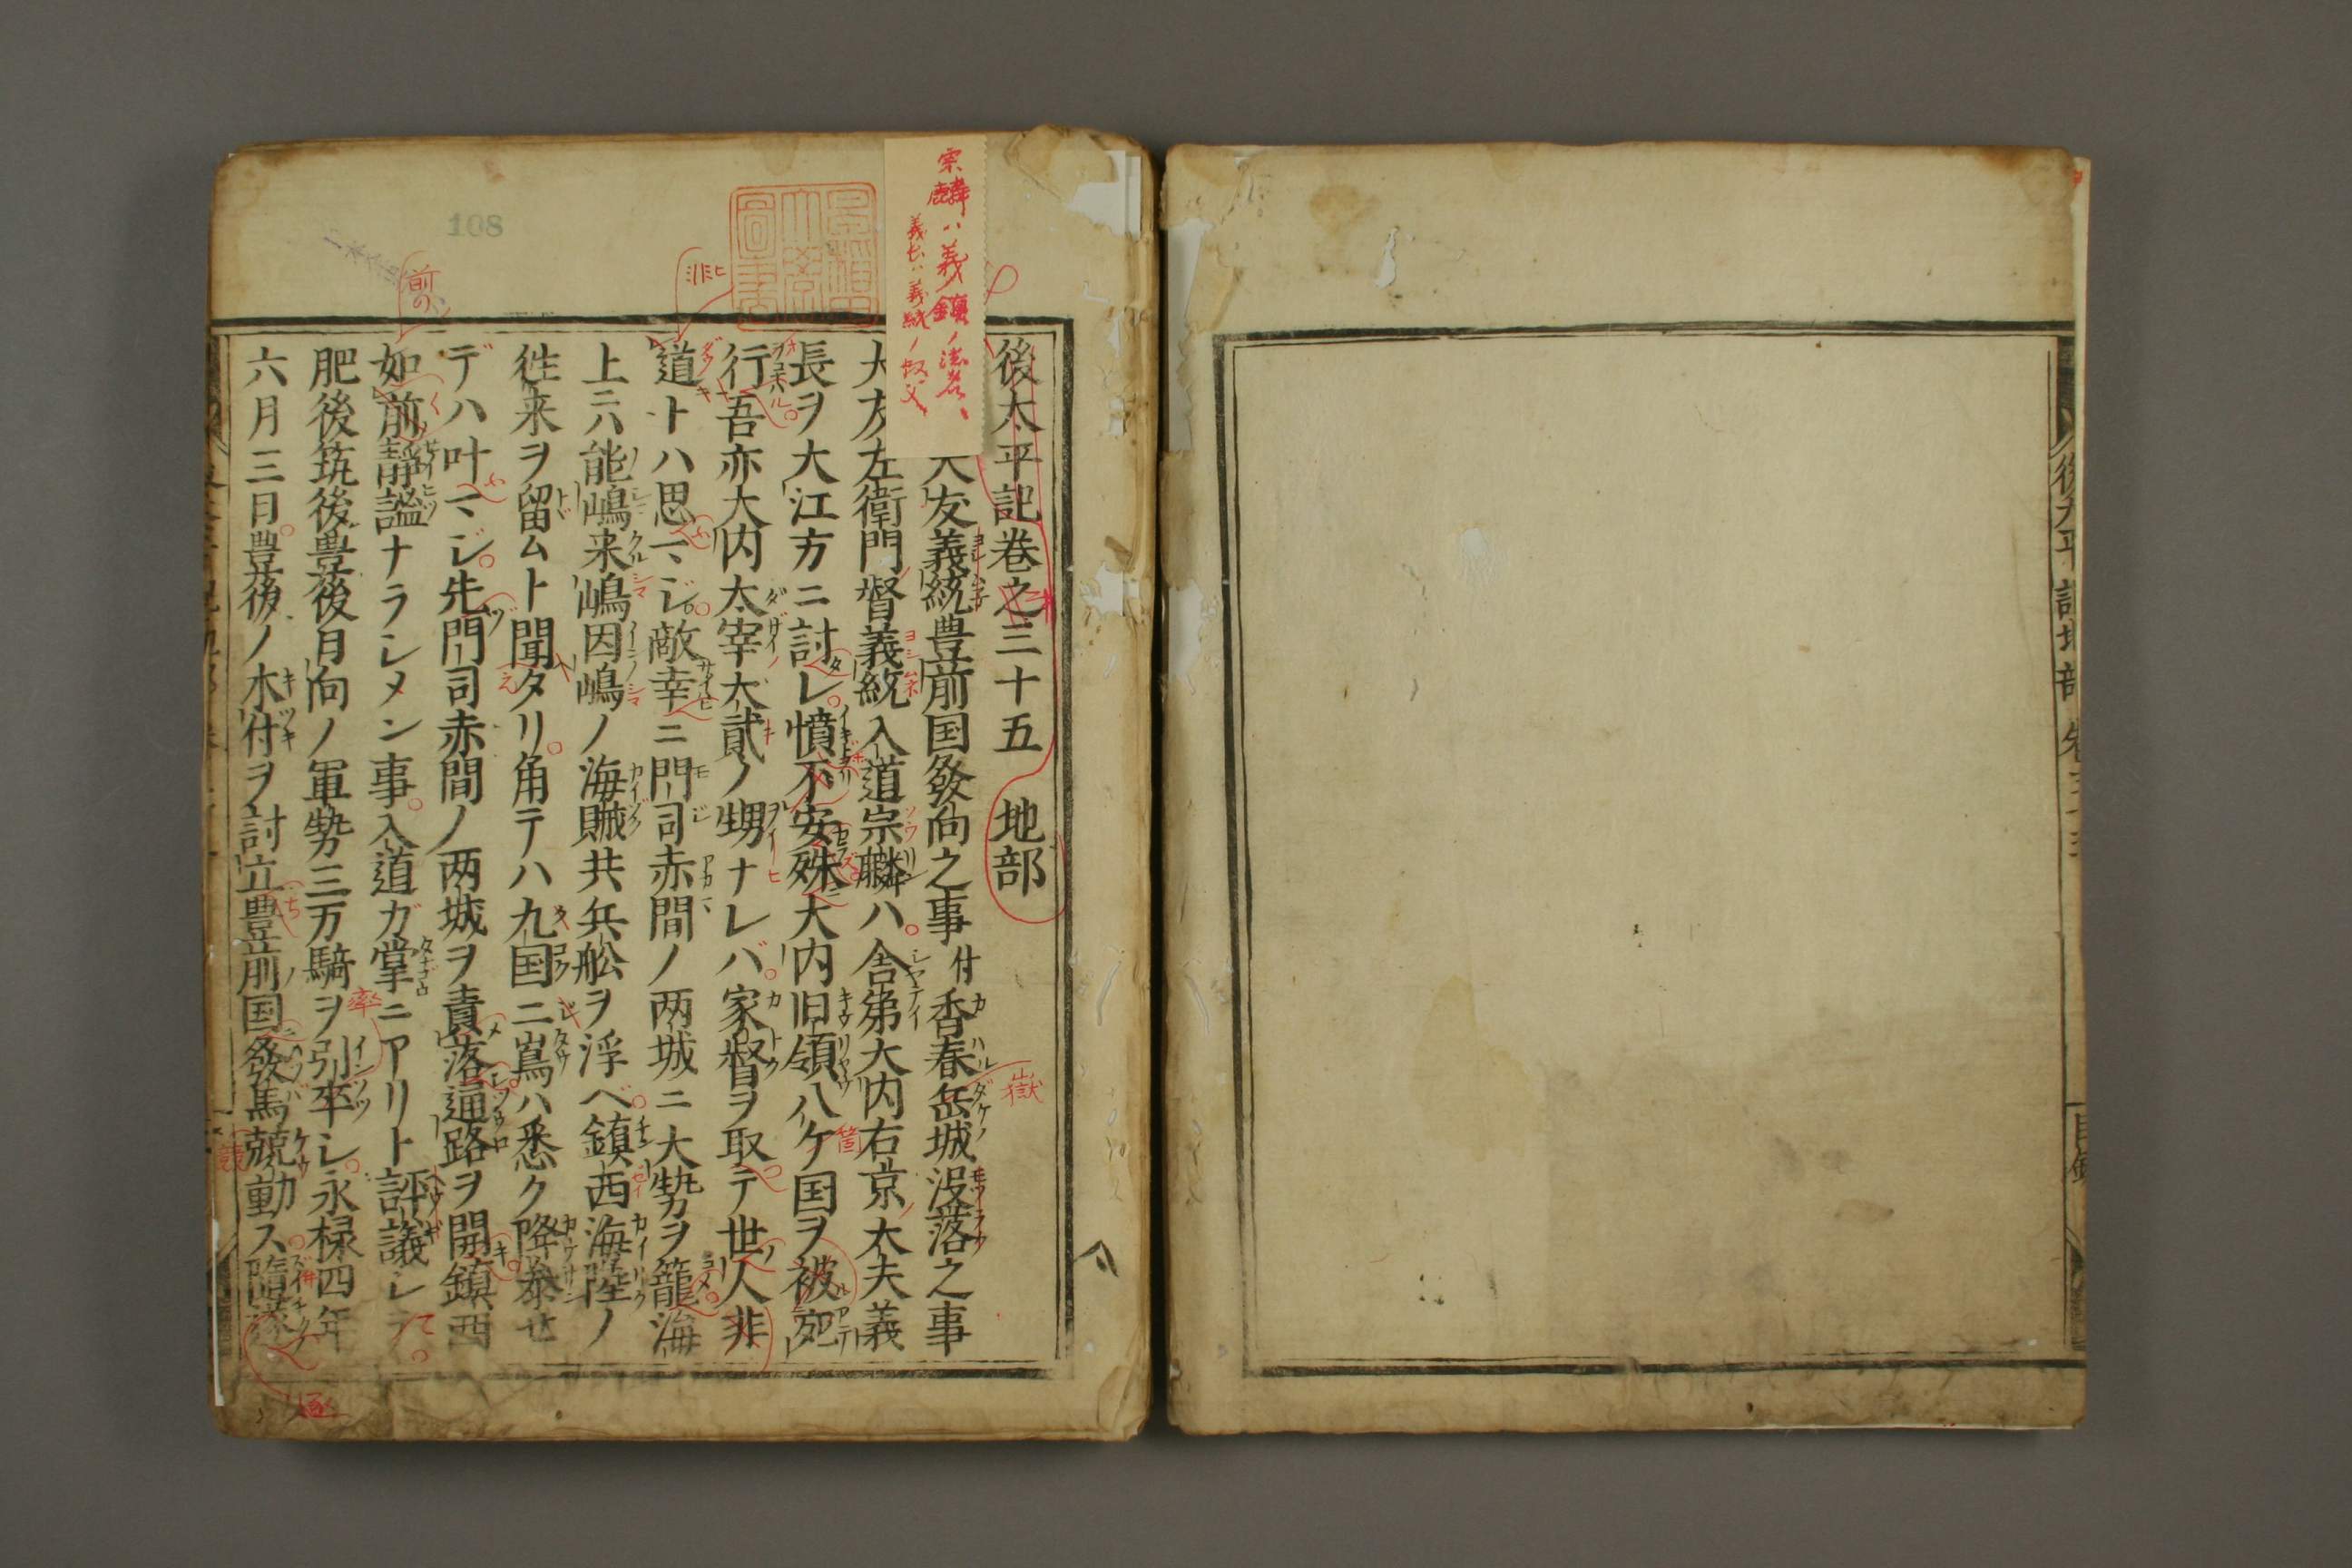 後太平記地部
後太平記巻之三十五　地部
大友義統豊前国發向之事付香春岳城没落之事
大友左衛門督義統入道宗麟ハ舎弟大内右京大夫義
長ヲ大江方ニ討レ憤不安殊大内旧領八ケ国ヲ被宛
行吾亦大内太宰大貳ノ甥ナレバ家督ヲ取テ世人非
道トハ思ハジ敵幸ニ門司赤間ノ両城ニ大勢ヲ籠海
上ニハ能嶋来嶋因嶋ノ海賊共兵舩ヲ浮ベ鎮西海陸ノ
徃来ヲ留ムト聞タリ角テハ九国ニ嶌ハ悉ク降参セ
デハ叶ハジ先門司赤間ノ両城ヲ責落通路ヲ開鎮西
如前静謐ナラシメン事入道ガ掌ニアリト評議シテ
肥後筑後豊後日向ノ軍勢三万騎ヲ引卒シ永禄四年
六月三日豊後ノ木付ヲ討立豊前国發馬競動ス隨逐
宗麟ハ義鎮ノ法名、
義長ハ義統ノ叔父
前の
非
嶽
箇
率
逐
108